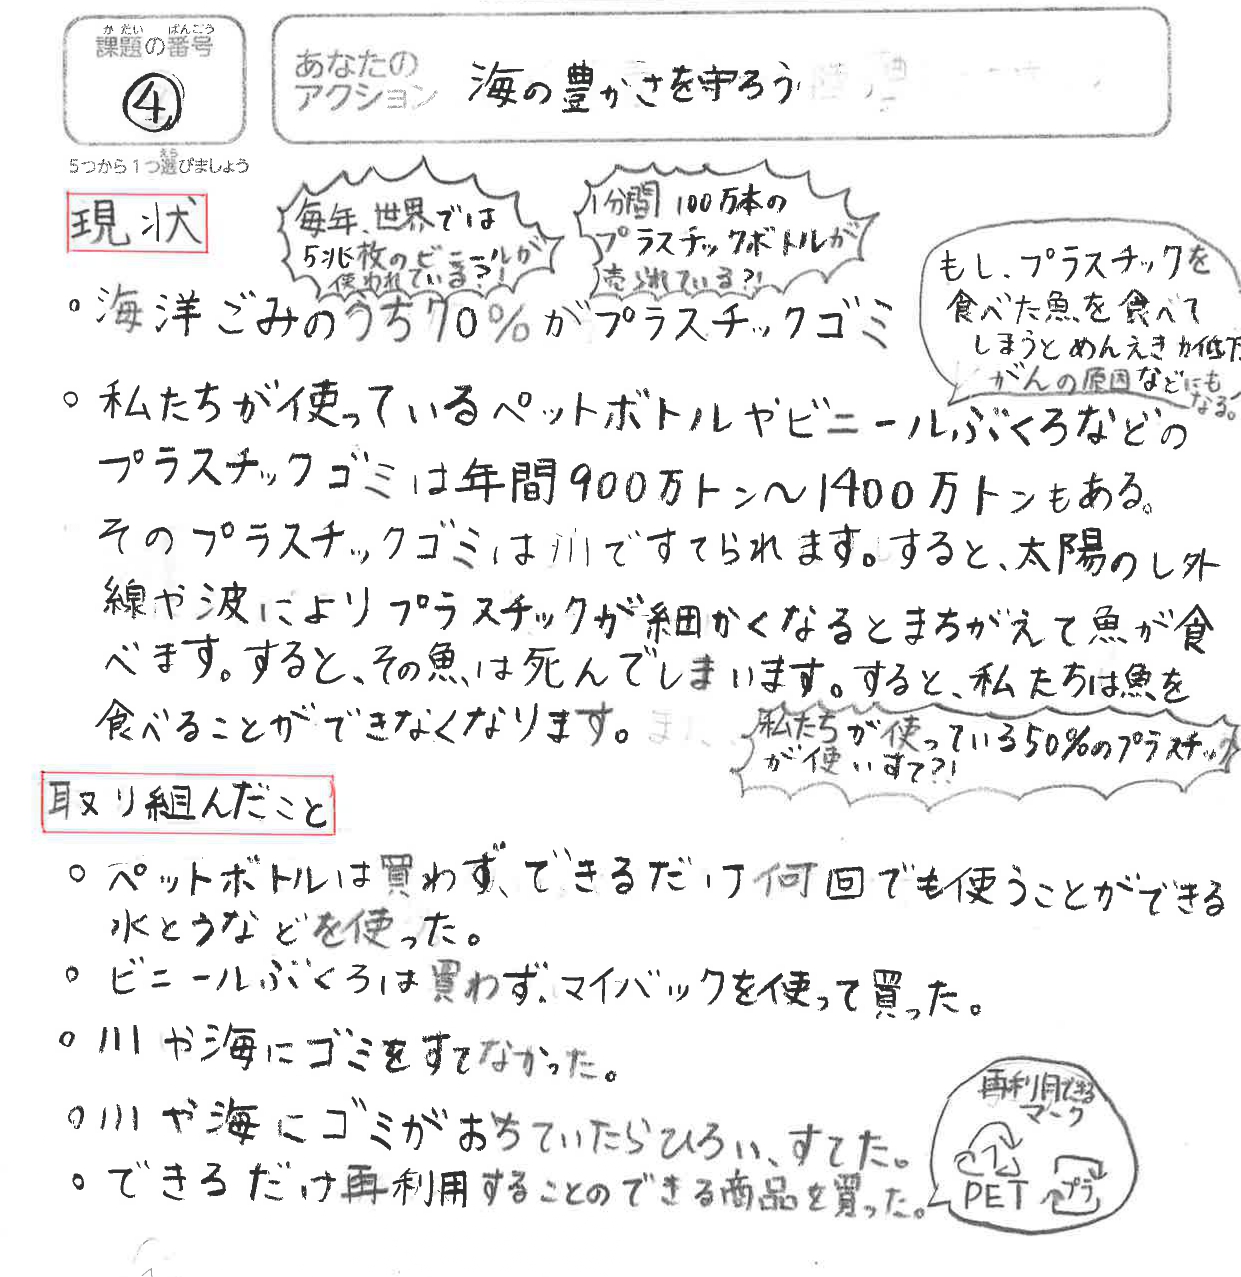 かだい ばんごう
課題の番号
④
えら
5つから1つ選びましょう
あなたの
アクション
海の豊かさを守ろう
現状
毎年、世界では
5兆枚のビニールが
使われている?!
1分間100万本の
プラスチックボトルが
売られている?!
もし、プラスチックを
食べた魚を食べて
しまうとめんえきが低下
がんの原因などにも
なる。
・海洋ごみのうち70%がプラスチックゴミ
・私たちが使っているペットボトルやビニールぶくろなどの
プラスチックゴミは年間900万トン～1400万トンもある。
そのプラスチックゴミは川ですてられます。すると、太陽のし外
線や波によりプラスチックが細かくなるとまちがえて魚が食
べます。すると、その魚は死んでしまいます。すると、私たちは魚を
食べることができなくなります。
私たちが使っている50%のプラスチック
が使いすて?!
取り組んだこと
・ペットボトルは買わず、できるだけ何回でも使うことができる
水とうなどを使った。
・ビニールぶくろは買わず、マイバックを使って買った。
・川や海にゴミをすてなかった。
・川や海にゴミがおちていたらひろい、すてた。
・できるだけ再利用することのできる商品を買った。
再利用できる
マーク
1
PET
プラ